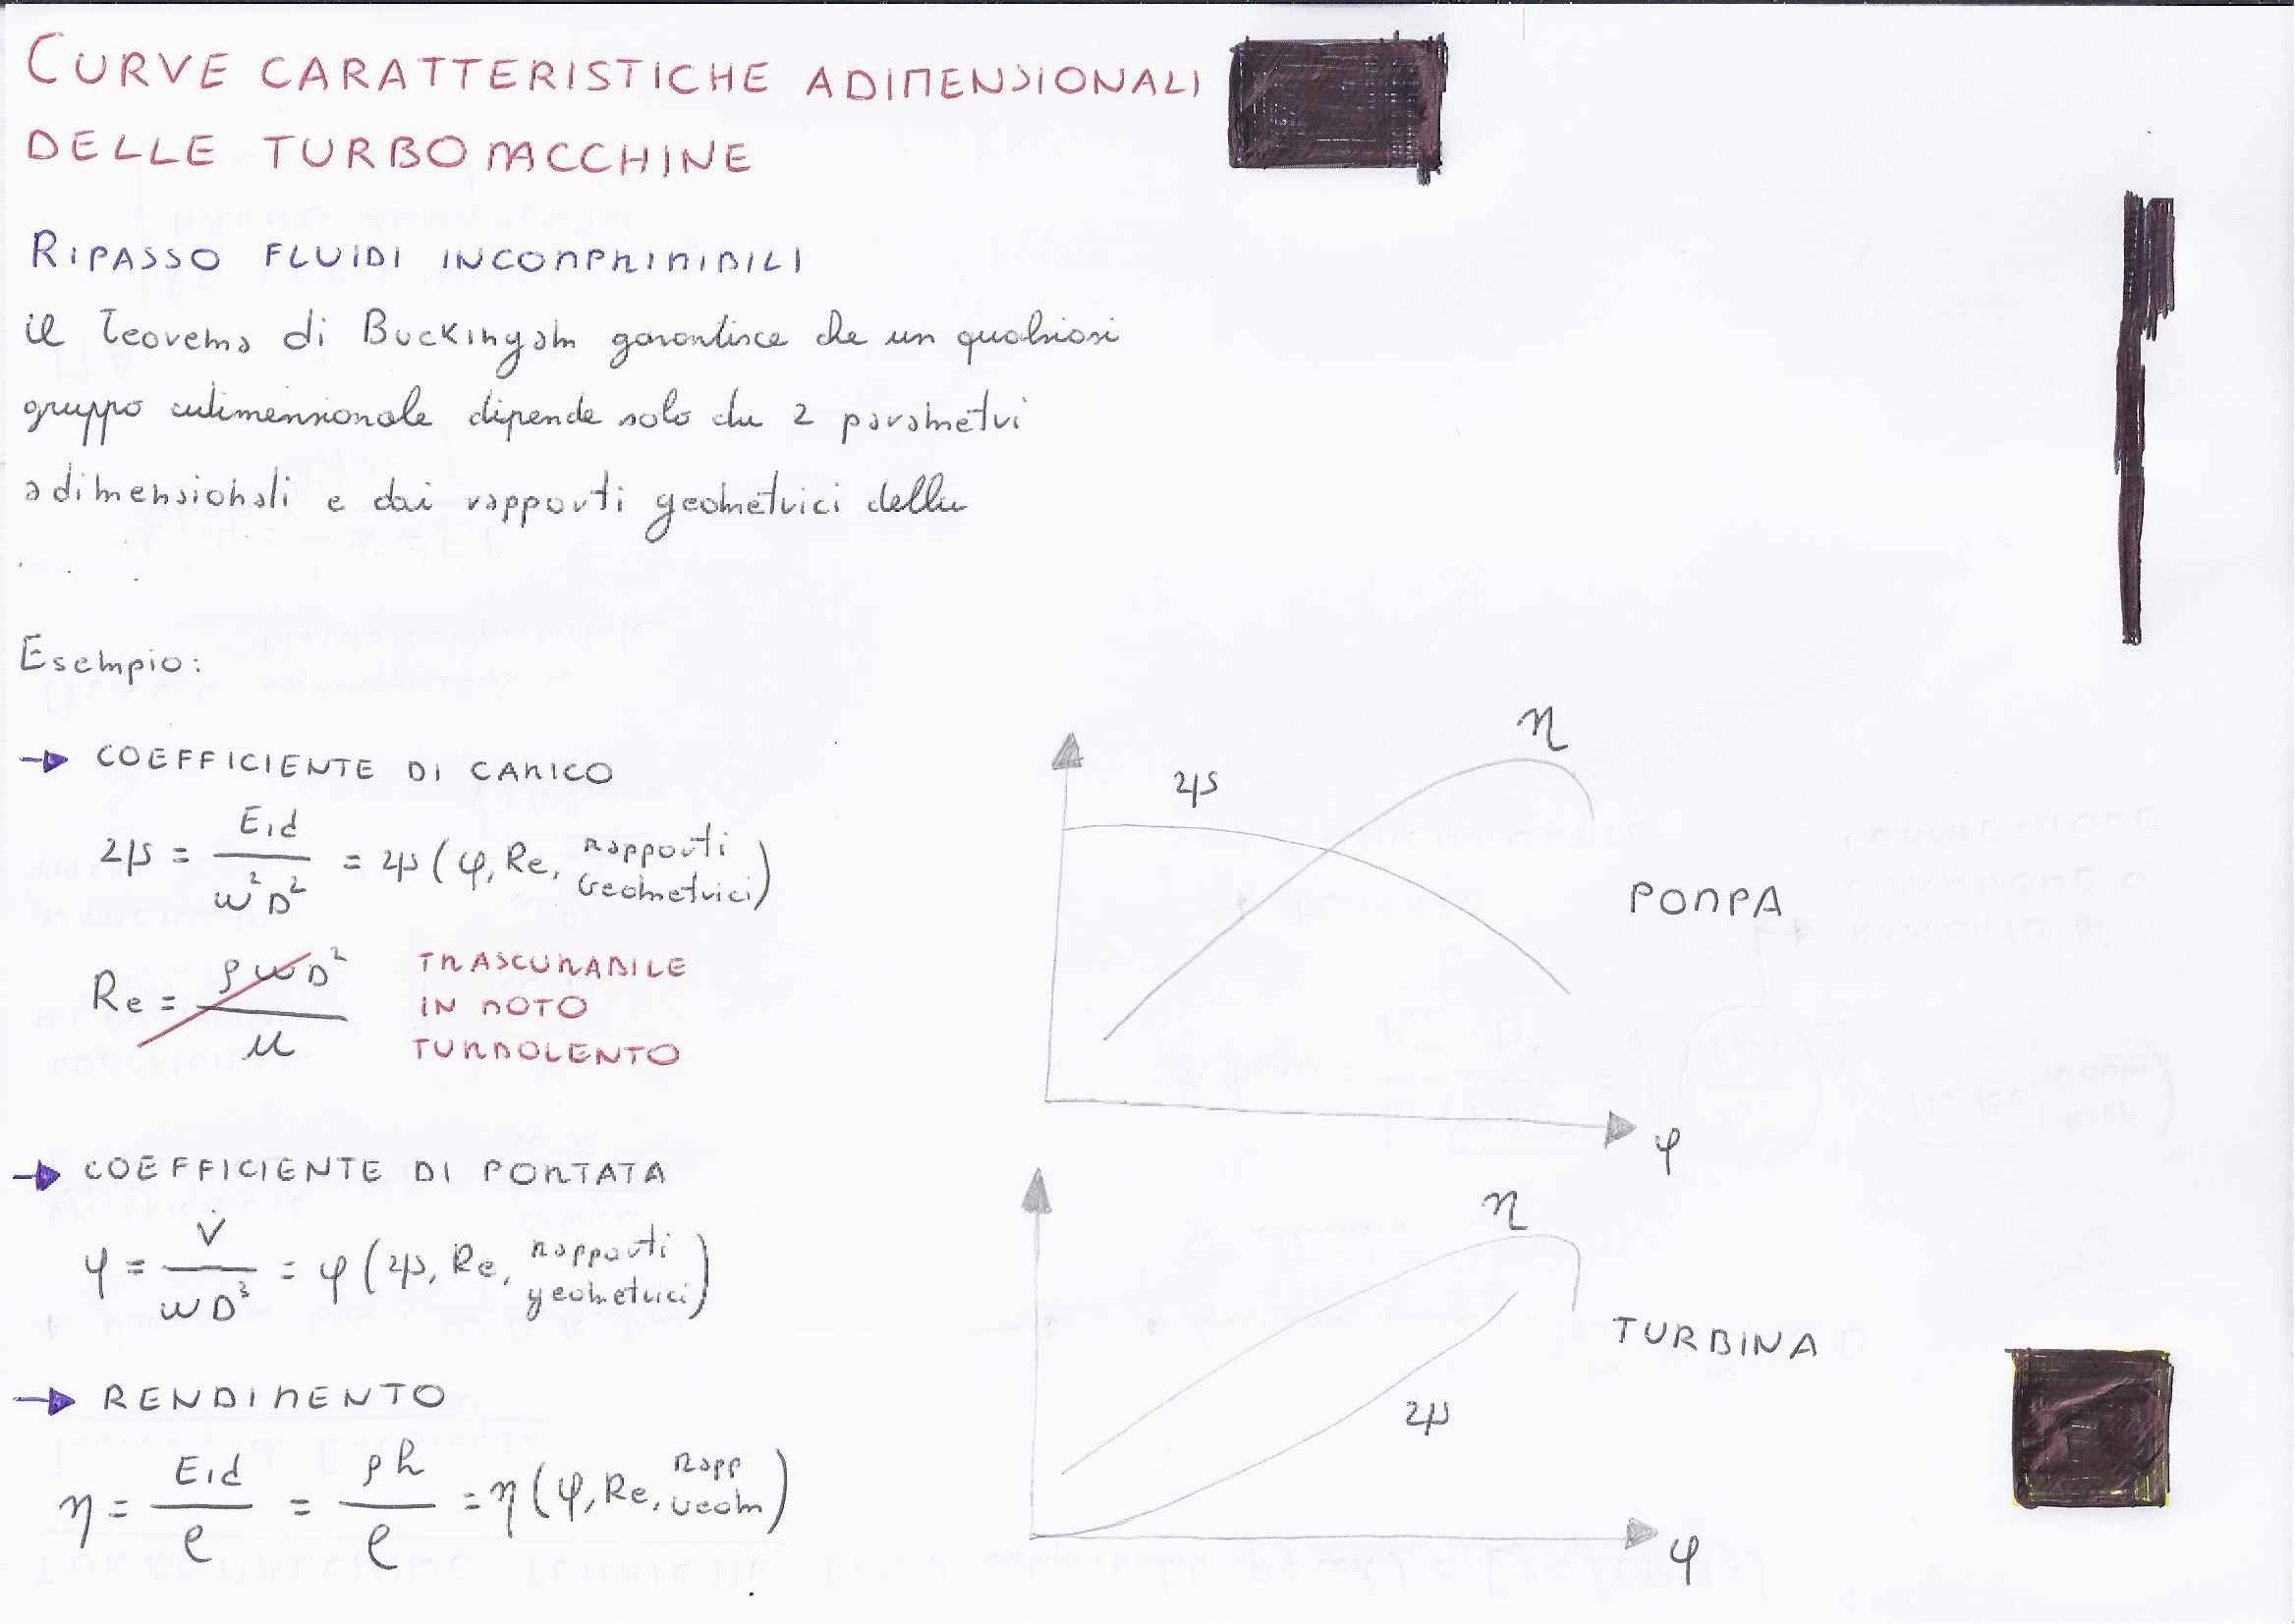 CURVE CARATTERISTICHE ADIMENSIONALI
DELLE TURBOMACCHINE
RIPASSO FLUIDI INCOMPRIMIBILI
il Teorema di Buckingam garantisce che un qualsiasi
gruppo adimensionale dipende solo da 2 parametri
adimensionali e dai rapporti geometrici della
Esempio:
→ COEFFICIENTE DI CARICO
ψ = Eid / ω² D² = ψ (φ, Re, Rapporti Geometrici)
Re = ρ ω D² / μ
TRASCURABILE
IN MOTO
TURBOLENTO
→ COEFFICIENTE DI PORTATA
φ = V̇ / ω D³ = φ (ψ, Re, Rapporti geometrici)
→ RENDIMENTO
η = Eid / e = ρh / e = η (φ, Re, Rapp Geom)
η
ψ
POMPA
φ
η
TURBINA
ψ
φ